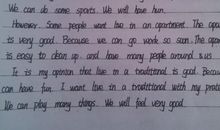 We can do some sports. We will have fun.
However. Some people want live in an apartment. The apar
is very good. Because we can go work so soon. The apar
is easy to clean up. and have many people around us
It is my opinion that live in a traditional is good. Becau
can have fun. I want live in a traditional with my
We can play many things. We will feel very good